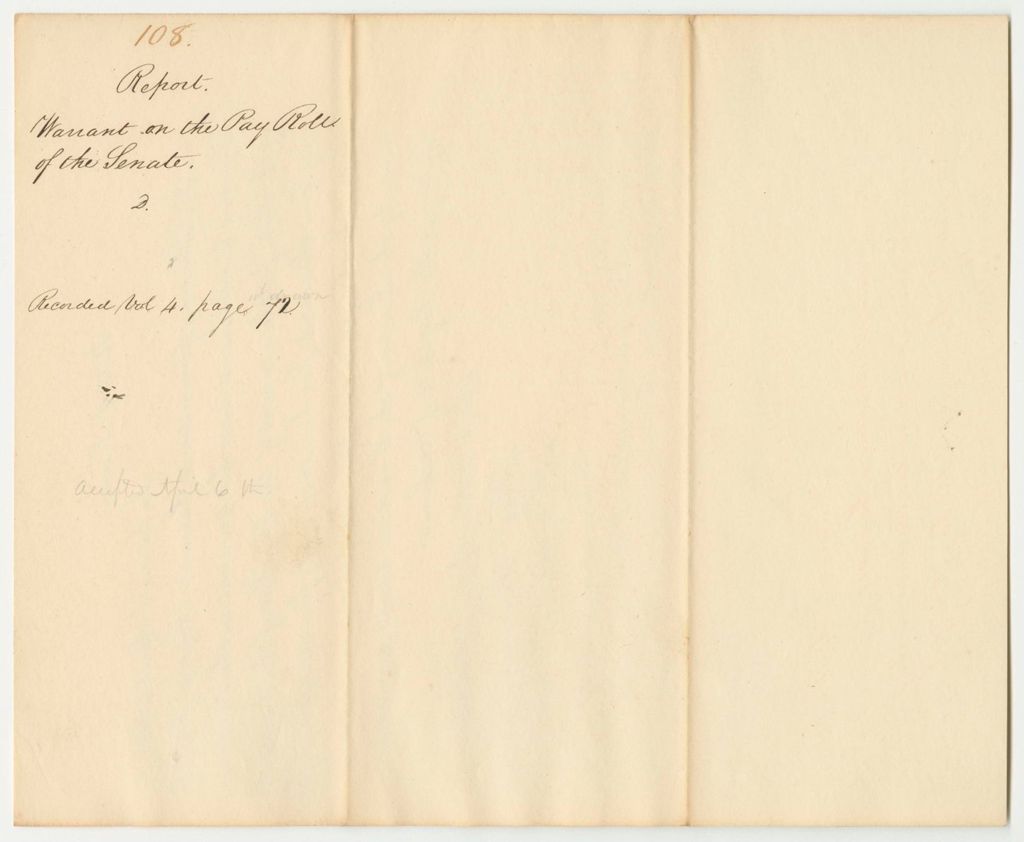 108.
Report.
Warrant on the Pay Rolls
of the Senate.
D.
Recorded Vol 4. page 72
Accepted April 6th